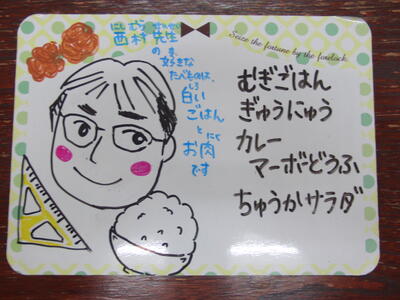 Seize the fortune by the forelock.
にしむら せんせい
西村 先生
の
好きな
たべものは、
しろ
白い
ごはん
と にく
お肉
です
むぎごはん
ぎゅうにゅう
カレー
マーボーどうふ
ちゅうかサラダ